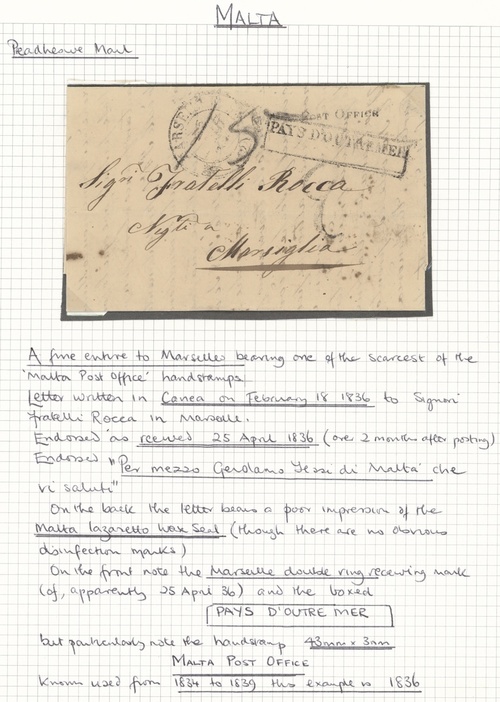 MALTA
Predhesive Mail
MARSEILLE
POST OFFICE
PAYS D'OUTRE MER
Sigri Fratelli Rocca
Negti a
Marsiglia
A fine entire to Marseilles bearing one of the scarcest of the
'Malta Post Office' handstamps
Letter written in Canea on February 18 1836 to Signori
Fratelli Rocca in Marseille.
Endorsed as received 25 April 1836 (over 2 months after posting)
Endorsed "Per mezzo Gerolamo Tessi di Malta che
vi saluti"
On the back the letter bears a poor impression of the
Malta lazaretto wax seal (though there are no obvious
disinfection marks)
On the front note the Marseille double ring receiving mark
(of, apparently 25 April 36) and the boxed
PAYS D'OUTRE MER
but particularly note the handstamp 43mm x 3mm
MALTA POST OFFICE
Known used from 1834 to 1839 this example is 1836